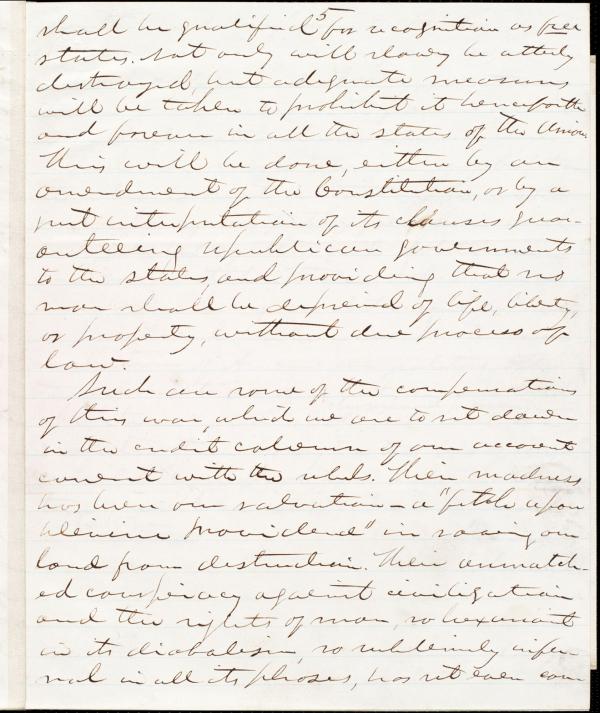 5
shall be qualified for recognition as free
states. Not only will slavery be utterly
destroyed, but adequate measures
will be taken to prohibit it henceforth
and forever in all the states of the Union.
This will be done, either by an
amendment of the Constitution, or by a
just interpretation of its clauses guar-
anteeing republican governments
to the states, and providing that no
man shall be deprived of life, liberty,
or property, without due process of
law.
Such are some of the compensations
of this war, which we are to set down
in the credit column of our account
current with the rebels. Their madness
has been our salvation - a "fetch upon
divine Providence" in saving our
land from destruction. Their unmatch-
ed conspiracy against civilization
and the rights of man, so
in its diabolism, so sublimely infer-
nal in all its phases, has set even com